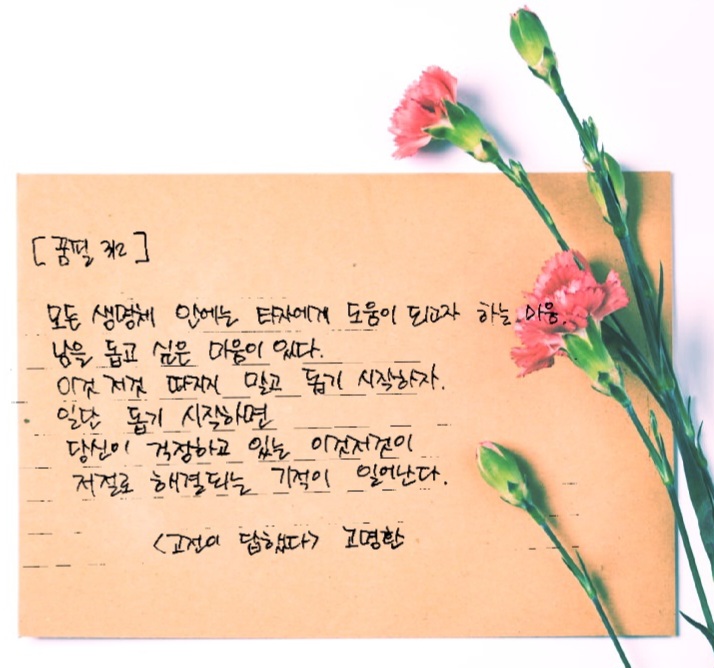 [꿈필 372]
모든 생명체 안에는 타자에게 도움이 되고자 하는 마음,
남을 돕고 싶은 마음이 있다.
이것 저것 따지지 말고 돕기 시작하자.
일단 돕기 시작하면
당신이 걱정하고 있는 이것저것이
저절로 해결되는 기적이 일어난다.
<고전이 답했다> 고명환